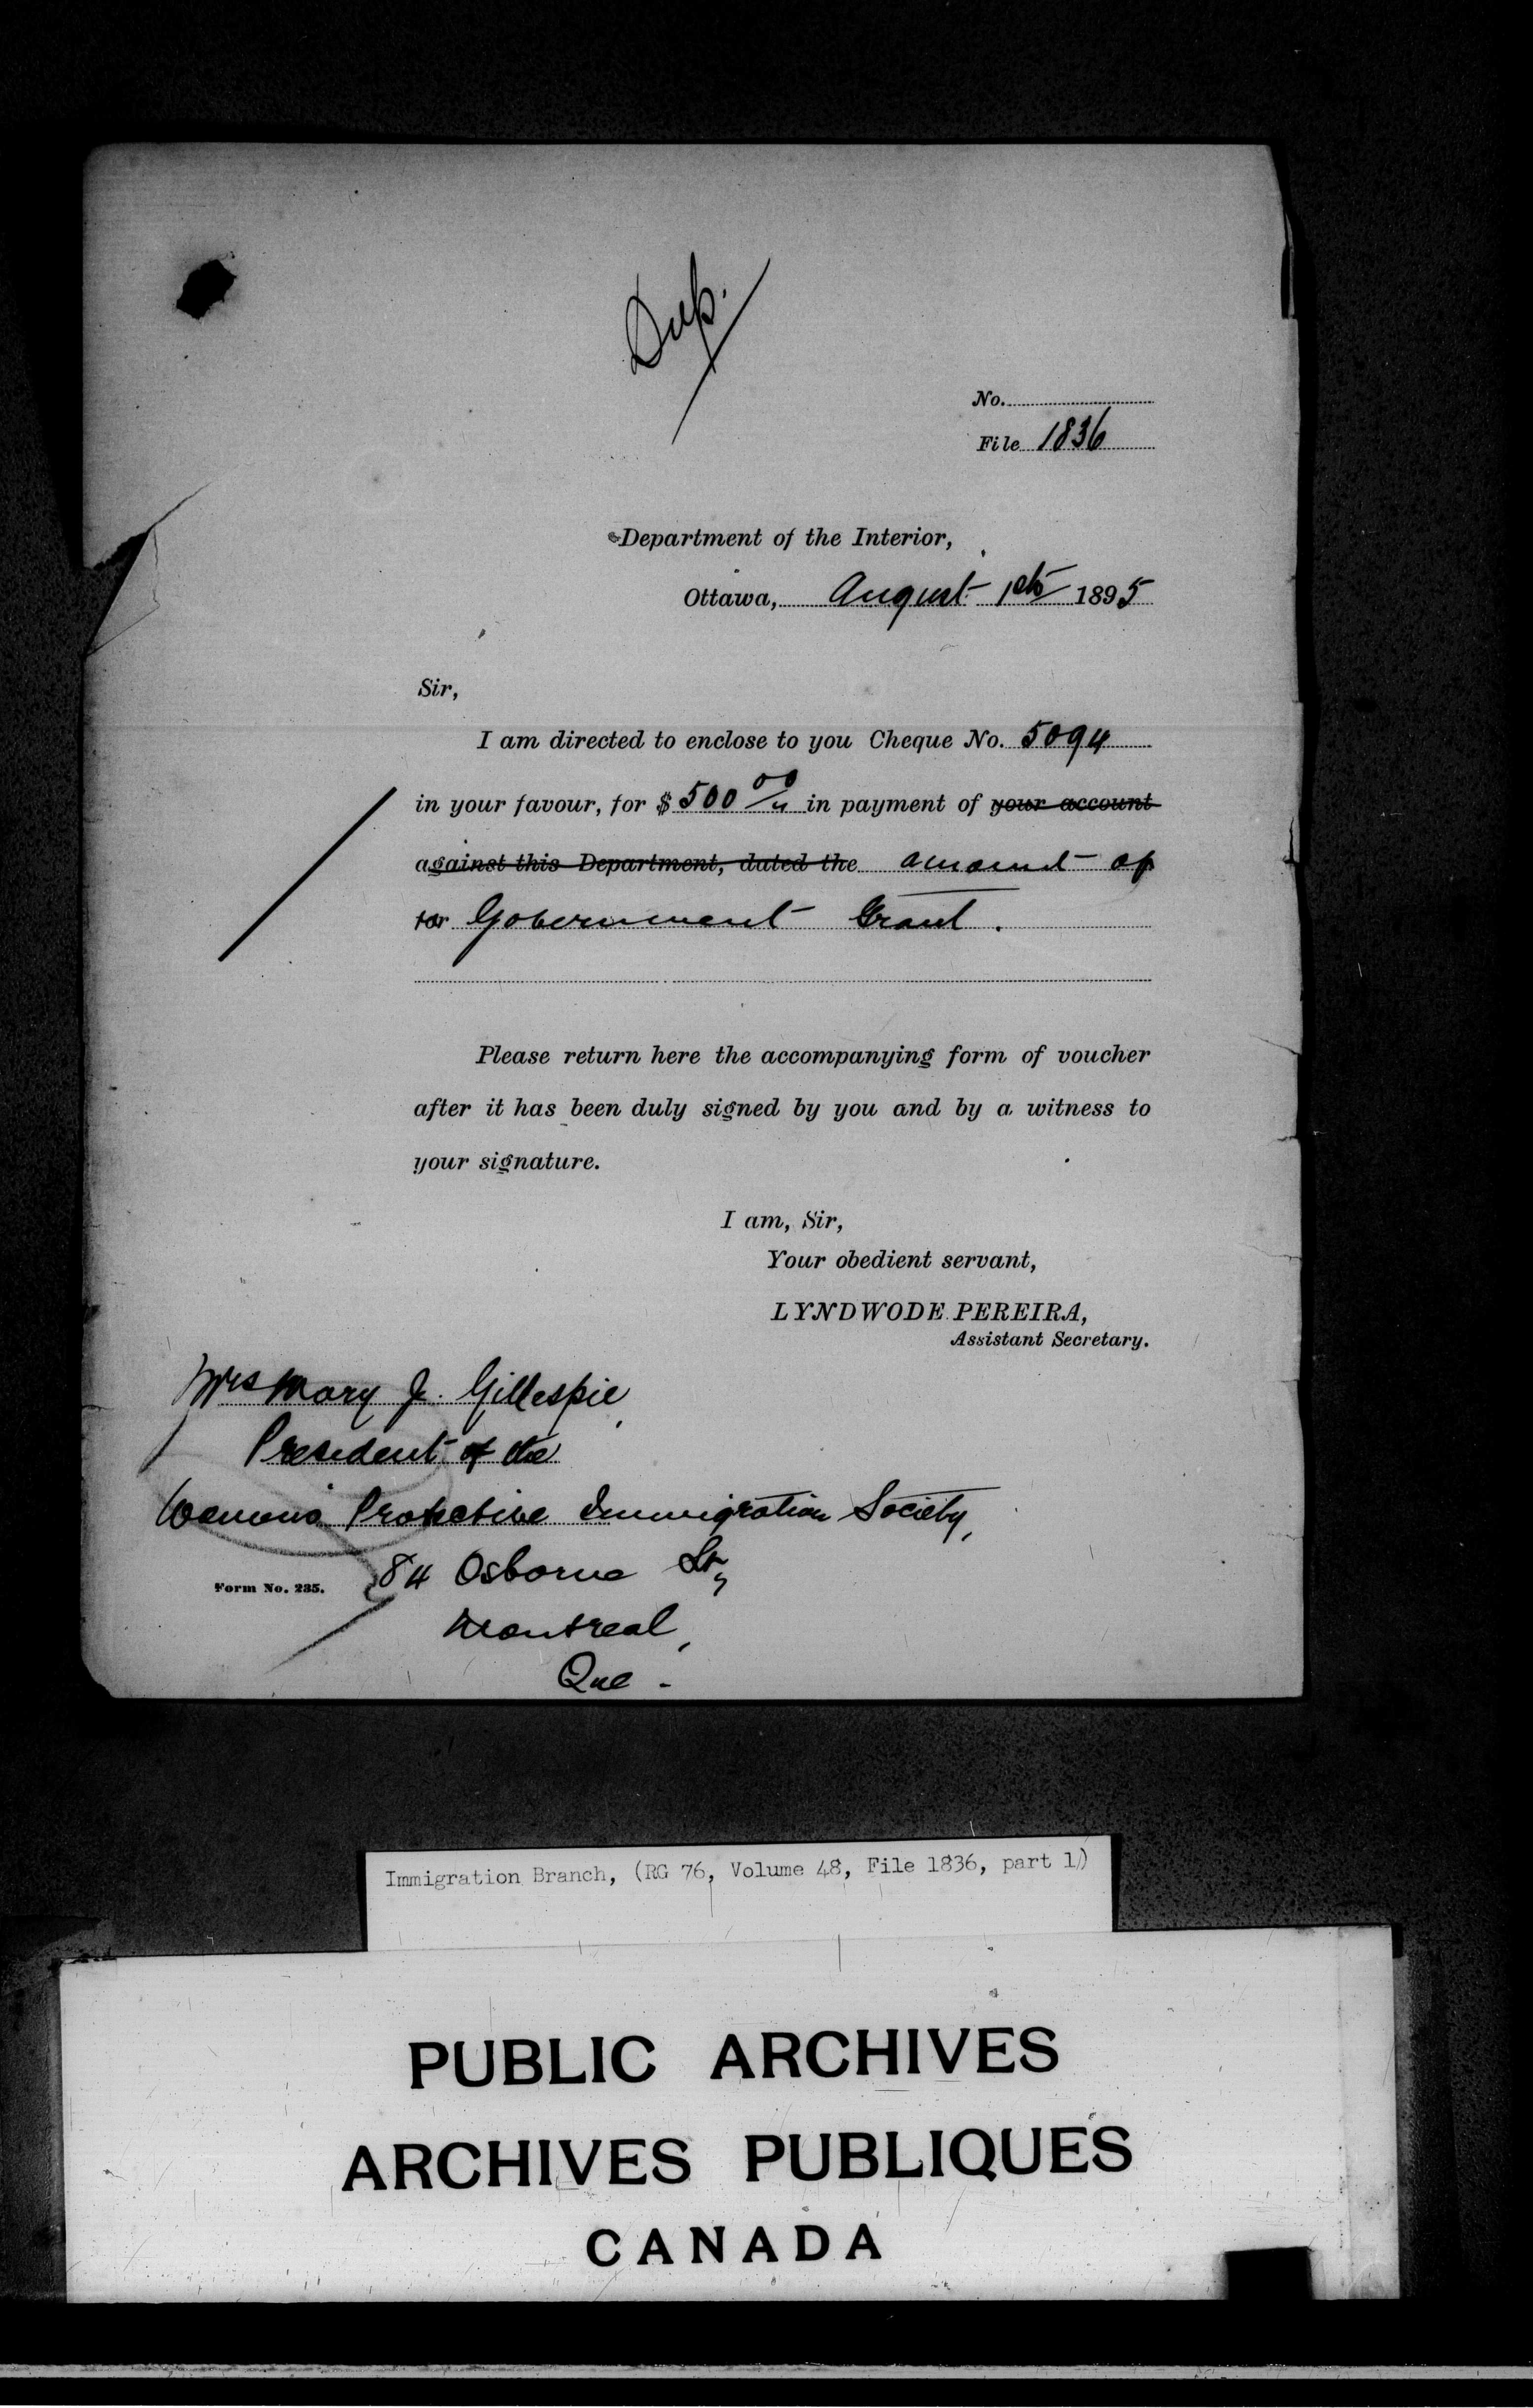 Dup.
No.
File 1836
Department of the Interior,
Ottawa, August 1st 1895
Sir,
I am directed to enclose to you Cheque No. 5094
in your favour, for $ 500 00/ in payment of your account
against this Department, dated the amount of
for Government Grant.
Please return here the accompanying form of voucher
after it has been duly signed by you and by a witness to
your signature.
I am, Sir,
Your obedient servant,
LYNDWODE PEREIRA,
Assistant Secretary.
Mrs Mary J. Gillespie
President of the
Womens Protective Immigration Society,
84 Osborne St,
Form No. 235.
Montreal,
Que -
Immigration Branch, (RG 76, Volume 48, File 1836, part 1)
PUBLIC ARCHIVES
ARCHIVES PUBLIQUES
CANADA